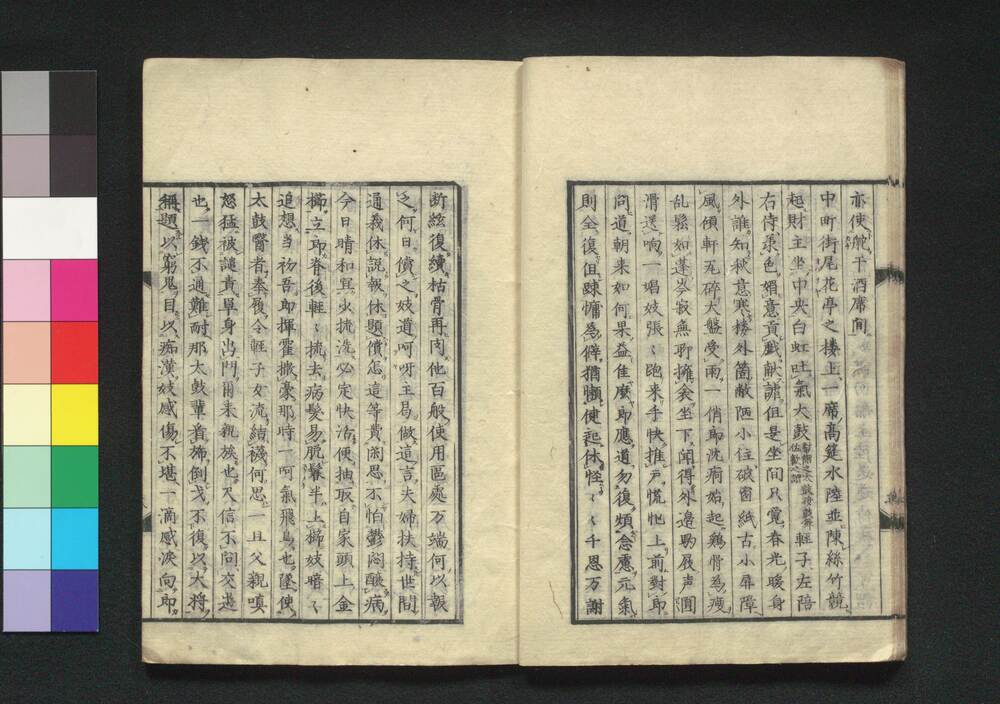 亦使舵干酒席間
中町街尾花亭之楼上一席高筵水陸並陳絲竹競
起財主坐中央白虹吐氣大鼓軽子左陪
右侍柔色娟意貢戯献諛但是坐間只覚春光暖身
外誰知秋意寒楼外箇敝陋小住破窗紙古小屏障
風傾軒瓦碎大盤受雨一俏郎沈痾始起鶏骨為痩
乱鬆如蓬岑寂無聊擁衾坐下聞得外邊跫屐声
滑送响一唱妓張々跑来手快推戸慌忙上前對郎
問道朝来如何果益佳麼郎應道勿復煩念慮元氣
則全復但疎慵為僻猶懶使起休怪々々千恩万謝
断絃復續枯骨再肉他百般使用區處万端何以報
之何日償之妓道呵呀王曷做這言夫婦扶持世間
通義休説報休題償怎這等費閑思不怕鬱悶釀病
今日晴和宜少梳洗必定快活便抽取自家頭上金
櫛立郎脊後軽々梳去病髪易脱鬢半上櫛妓暗々
追想当初吾郎揮霍撒豪那時一呵氣飛鳥也墜使
太鼓醫者奉履令軽子女流結襪何思一旦父親嗔
怒猛被譴責單身出門爾来親族也不信不問交遊
也一錢不通難耐那太鼓輩者旆倒戈不復以大将
稱題以窮鬼目以痴漢妓感傷不堪一滴感涙向郎